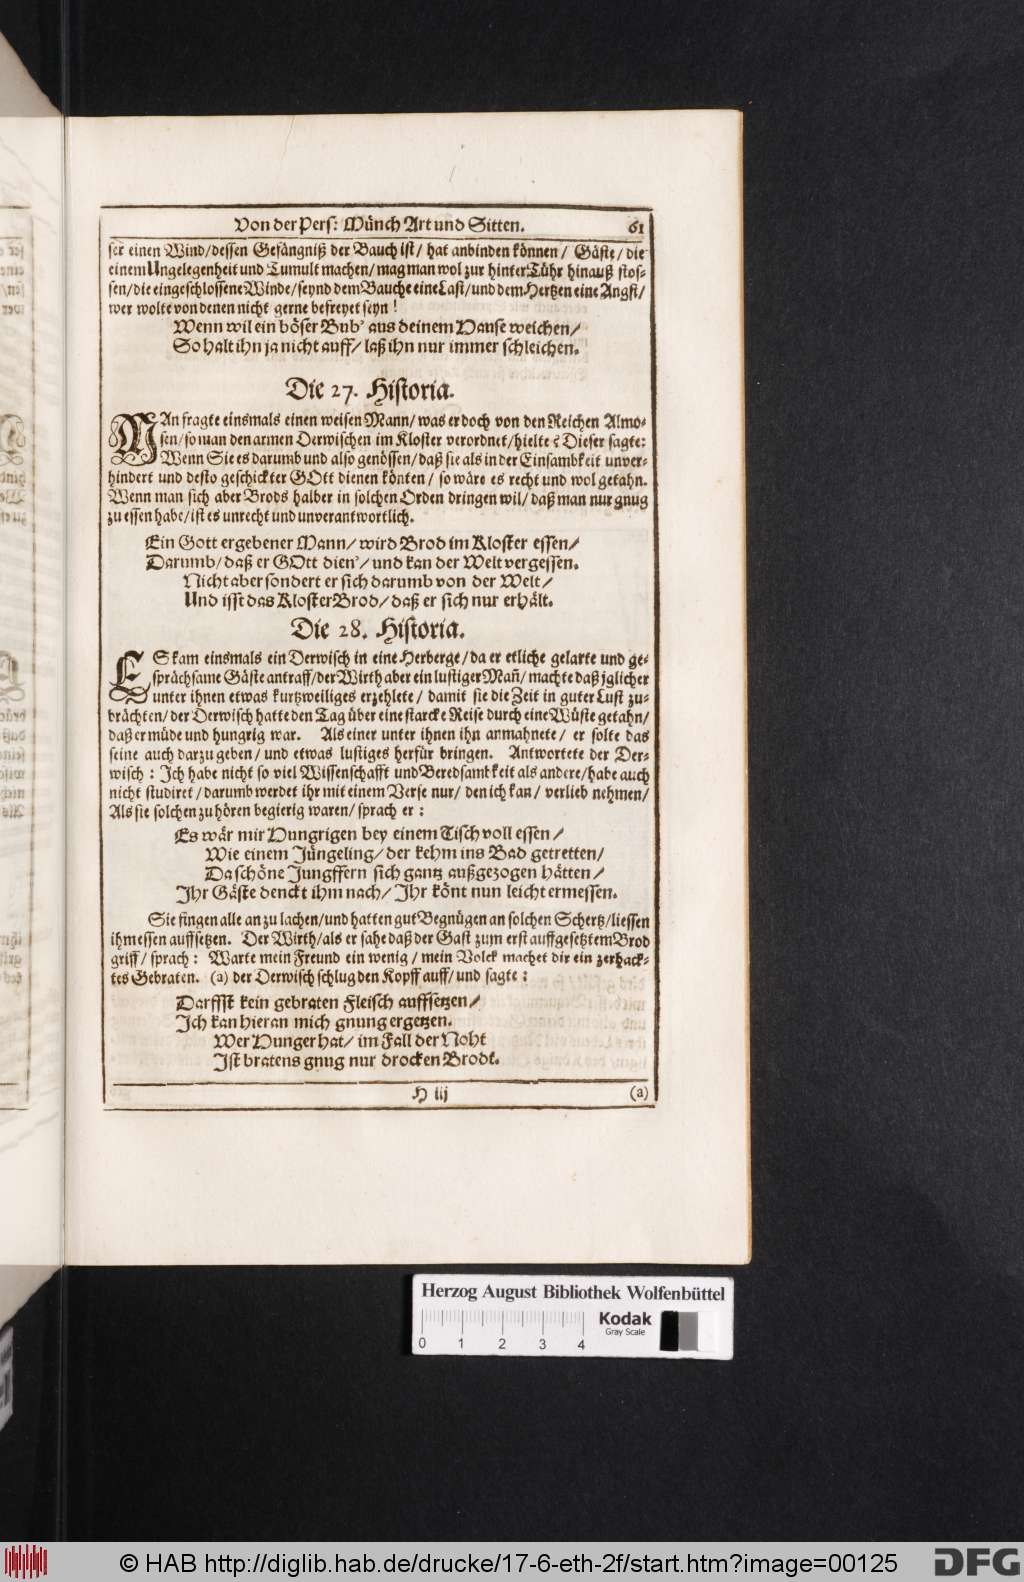 Von der Pers: Münch Art und Sitten. 61
ser einen Wind/ dessen Gefängniß der Bauch ist/ hat anbinden können/ Gäste/ die
einem Ungelegenheit und Tumult machen/ mag man wol zur hinter Tühr hinauß stos-
sen/ die eingeschlossene Winde/ seynd dem Bauche eine Last/ und dem Hertzen eine Angst/
wer wolte von denen nicht gerne befreyet seyn!
Wenn wil ein böser Bub' aus deinem Hause weichen/
So halt ihn ja nicht auff/ laß ihn nur immer schleichen.
Die 27. Historia.
MAn fragte einsmals einen weisen Mann/ was er doch von den Reichen Almo-
sen/ so man den armen Derwischen im Kloster verordnet/ hielte? Dieser sagte:
Wenn Sie es darumb und also genössen/ daß sie als in der Einsambkeit unver-
hindert und desto geschickter GOtt dienen könten/ so wäre es recht und wol getahn.
Wenn man sich aber Brods halber in solchen Orden dringen wil/ daß man nur gnug
zu essen habe/ ist es unrecht und unverantwortlich.
Ein Gott ergebener Mann/ wird Brod im Kloster essen/
Darumb/ daß er GOtt dien'/ und kan der Welt vergessen.
Nicht aber sondert er sich darumb von der Welt/
Und isst das Kloster Brod/ daß er sich nur erhält.
Die 28. Historia.
ES kam einsmals ein Derwisch in eine Herberge/ da er etliche gelarte und ge-
sprächsame Gäste antraff/ der Wirth aber ein lustiger Mañ/ machte daß jglicher
unter ihnen etwas kurtzweiliges erzehlete/ damit sie die Zeit in guter Lust zu-
brächten/ der Derwisch hatte den Tag über eine starcke Reise durch eine Wüste getahn/
daß er müde und hungrig war. Als einer unter ihnen ihn anmahnete/ er solte das
seine auch darzu geben/ und etwas lustiges herfür bringen. Antwortete der Der-
wisch: Ich habe nicht so viel Wissenschafft und Beredsamkeit als andere/ habe auch
nicht studiret/ darumb werdet ihr mit einem Verse nur/ den ich kan/ verlieb nehmen/
Als sie solchen zu hören begierig waren/ sprach er:
Es wär mir Hungrigen bey einem Tisch voll essen/
Wie einem Jüngeling/ der kehm ins Bad getretten/
Da schöne Jungffern sich gantz außgezogen hätten/
Ihr Gäste denckt ihm nach/ Ihr könt nun leicht ermessen.
Sie fingen alle an zu lachen/ und hatten gut Begnügen an solchen Schertz/ liessen
ihm essen auffsetzen. Der Wirth/ als er sahe daß der Gast zum erst auffgesetztem Brod
griff/ sprach: Warte mein Freund ein wenig/ mein Volck machet dir ein zerhack-
tes Gebraten. (a) der Derwisch schlug den Kopff auff/ und sagte:
Darffst kein gebraten Fleisch auffsetzen/
Ich kan hieran mich gnung ergetzen.
Wer Hunger hat/ im Fall der Noht
Ist bratens gnug nur drocken Brodt.
H iij (a)
Herzog August Bibliothek Wolfenbüttel
0 1 2 3 4
Kodak
Gray Scale
© HAB http://diglib.hab.de/drucke/17-6-eth-2f/start.htm?image=00125
DFG